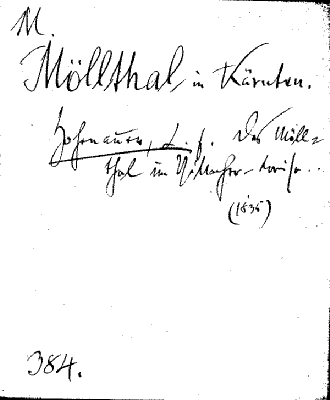 M.
Möllthal in Kärnten.
Hohenauer, L. f. Das Möll=
thal im Villacher-Kreise..
(1835)
384.